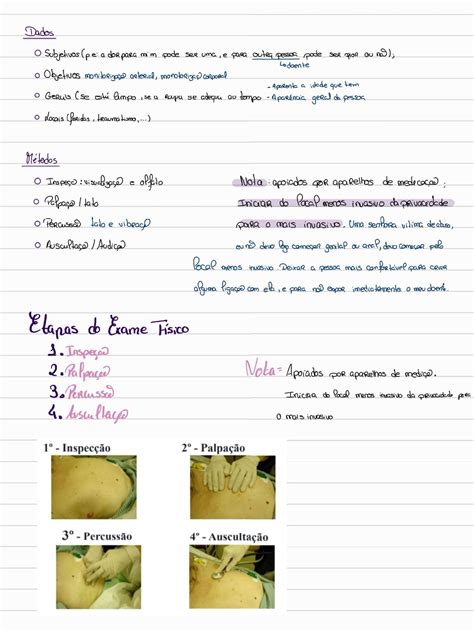 Dados
Subjetivos (p.e: a dor para mim pode ser uma, e para outra pessoa pode ser pior ou não);
↳ doente
Objetivos monitorização arterial, monitorização corporal
- Aparenta a idade que tem
Gerais (se está limpo, se a roupa se adequa ao tempo - Aparência geral da pessoa
Locais (feridas, traumatismo,...)
Métodos
Inspeção: visualização e olfato
Palpação / tato
Percussão tato e vibração
Auscultação / Audição
Nota: apoiados por aparelhos de medicação;
Iniciar do local menos invasivo da privacidade
para o mais invasivo. Uma senhora vítima de abuso,
ou não devo logo começar genital ou anal, devo começar pelo
local menos invasivo. Deixar a pessoa mais confortável para criar
alguma ligação com ela, e para não expor imediatamente o meu doente.
Etapas do Exame Físico
1. Inspeção
2. Palpação
3. Percussão
4. Auscultação
Nota = Apoiados por aparelhos de medição.
Iniciar do local menos invasivo da privacidade para
o mais invasivo
1º - Inspecção
2º - Palpação
3º - Percussão
4º - Auscultação